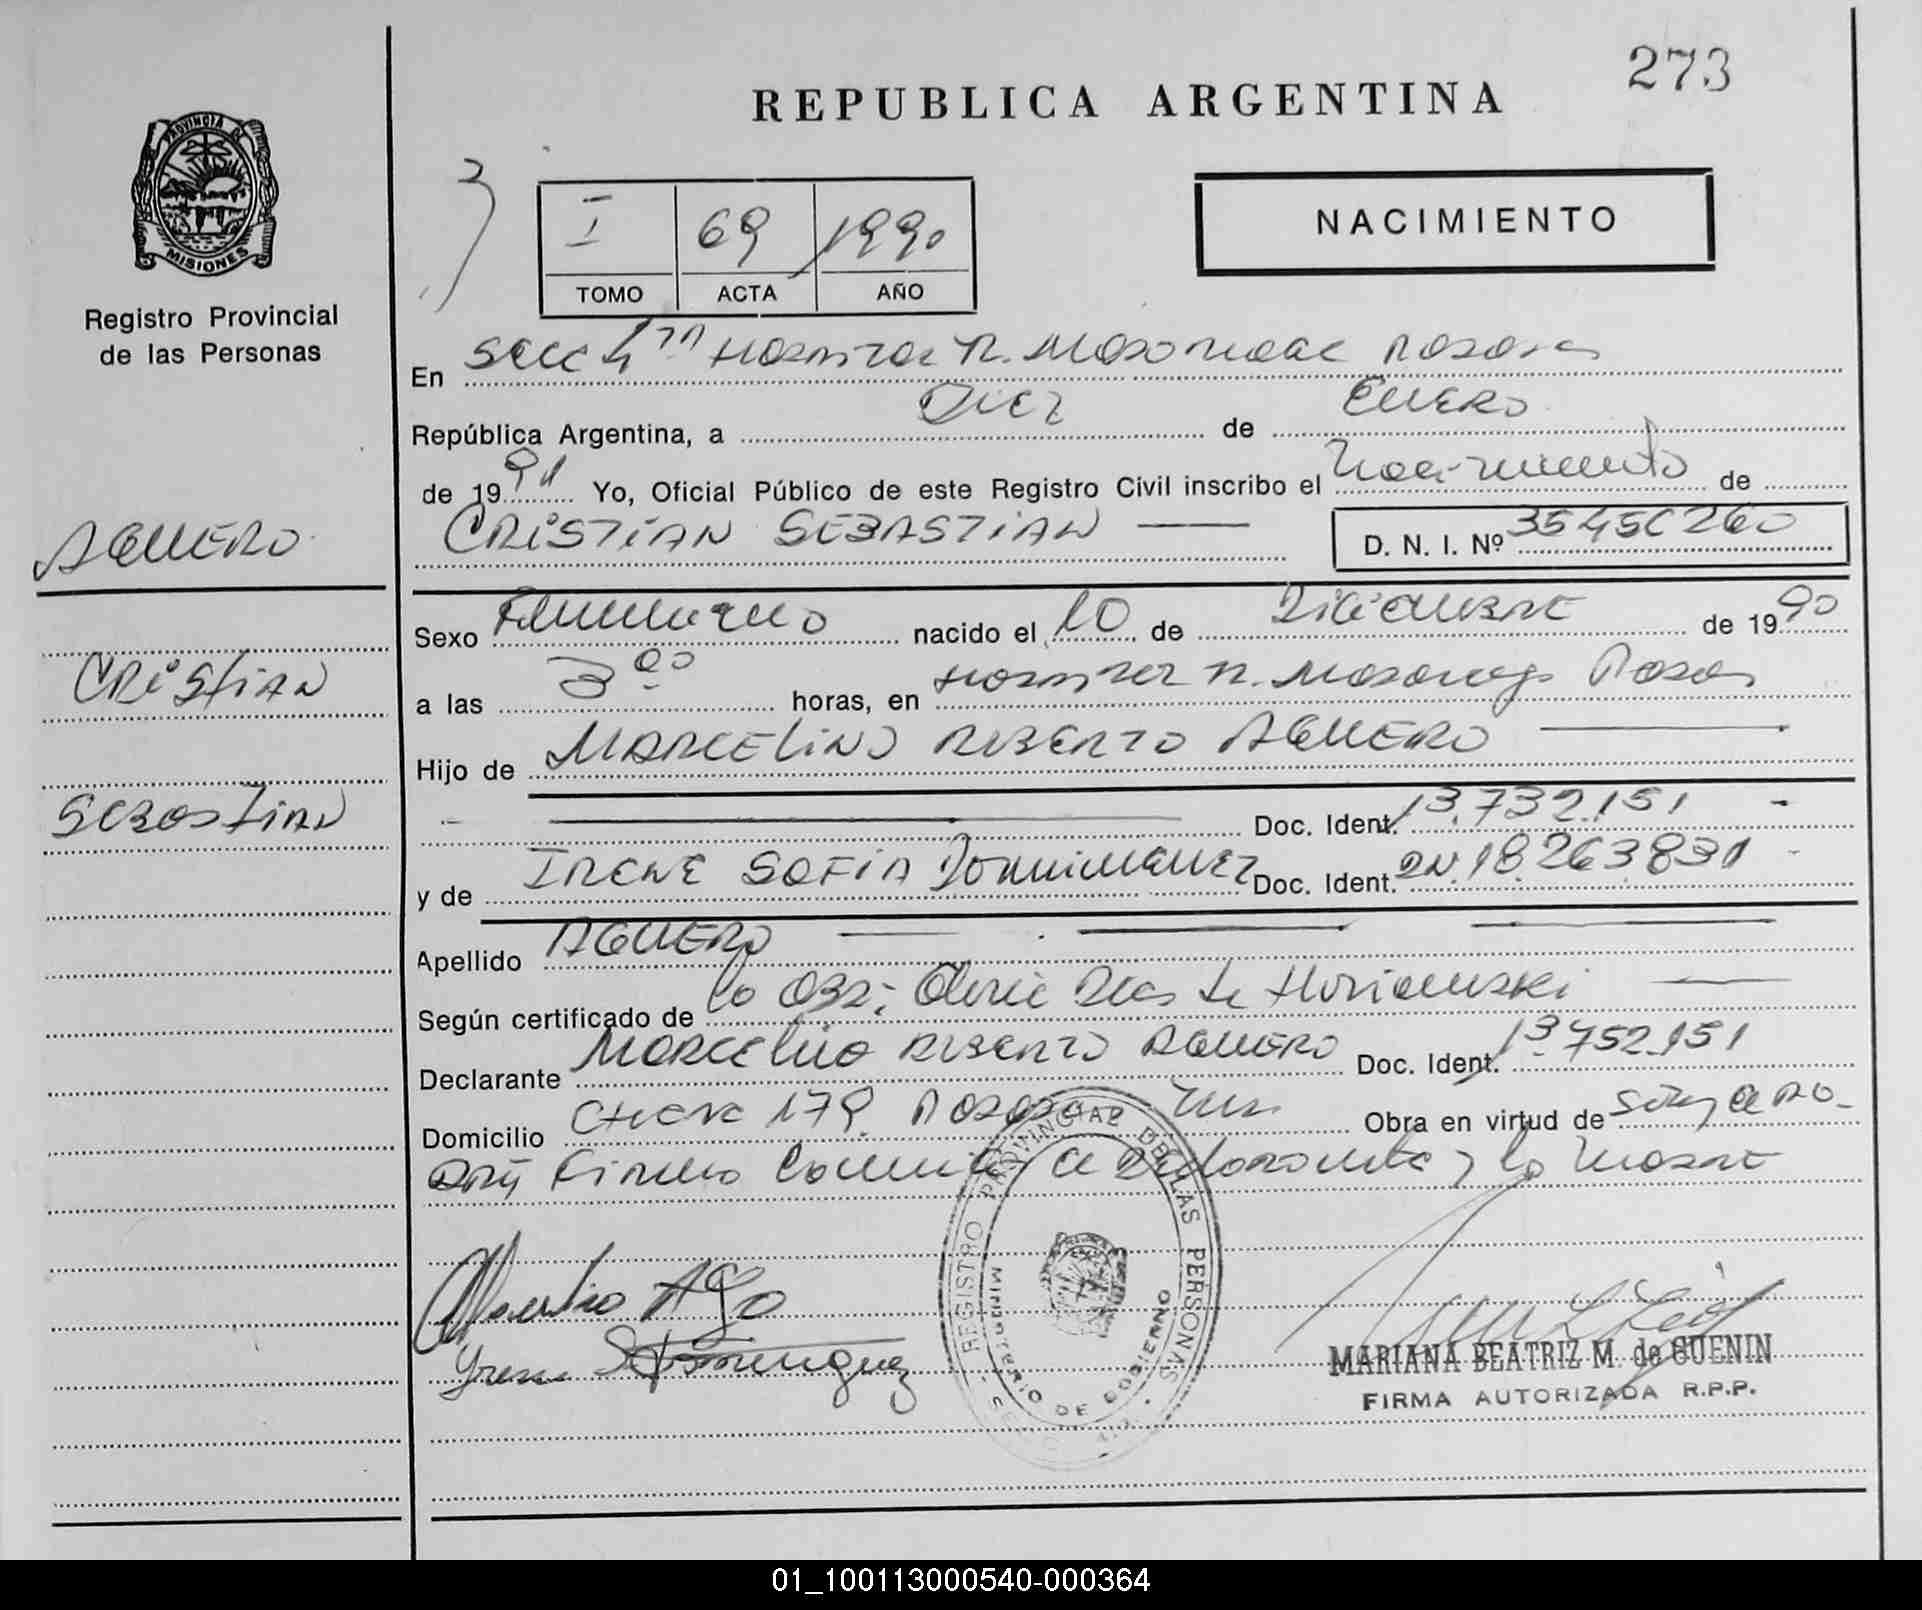 273
REPUBLICA ARGENTINA
PROVINCIA DE
MISIONES
Registro Provincial
de las Personas
NACIMIENTO
I 69 1990
TOMO ACTA AÑO
En Secc 4ta Hospital R. Posadas
República Argentina, a Diez de Enero
de 1991 Yo, Oficial Público de este Registro Civil inscribo el Nacimiento de
CRISTIAN SEBASTIAN
D. N. I. Nº 35456260
AGUERO
CRISTIAN
SEBASTIAN
Sexo nacido el 10 de Diciembre de 1990
a las 3 00 horas, en Hospital R. Posadas
Hijo de MARCELINO ROBERTO AGUERO
Doc. Ident. 13.732.151
y de IRENE SOFIA DOMINGUEZ Doc. Ident. DN. 18.263.831
Apellido AGUERO
Según certificado de la Obs;
Declarante MARCELINO ROBERTO AGUERO Doc. Ident. 13.752.151
Domicilio 179. Posadas Mnes. Obra en virtud de
Firman y la Madre
Dominguez
REGISTRO PROVINCIAL DE LAS PERSONAS
MINISTERIO DE GOBIERNO
MARIANA BEATRIZ M. de GUENIN
FIRMA AUTORIZADA R.P.P.
01_100113000540-000364